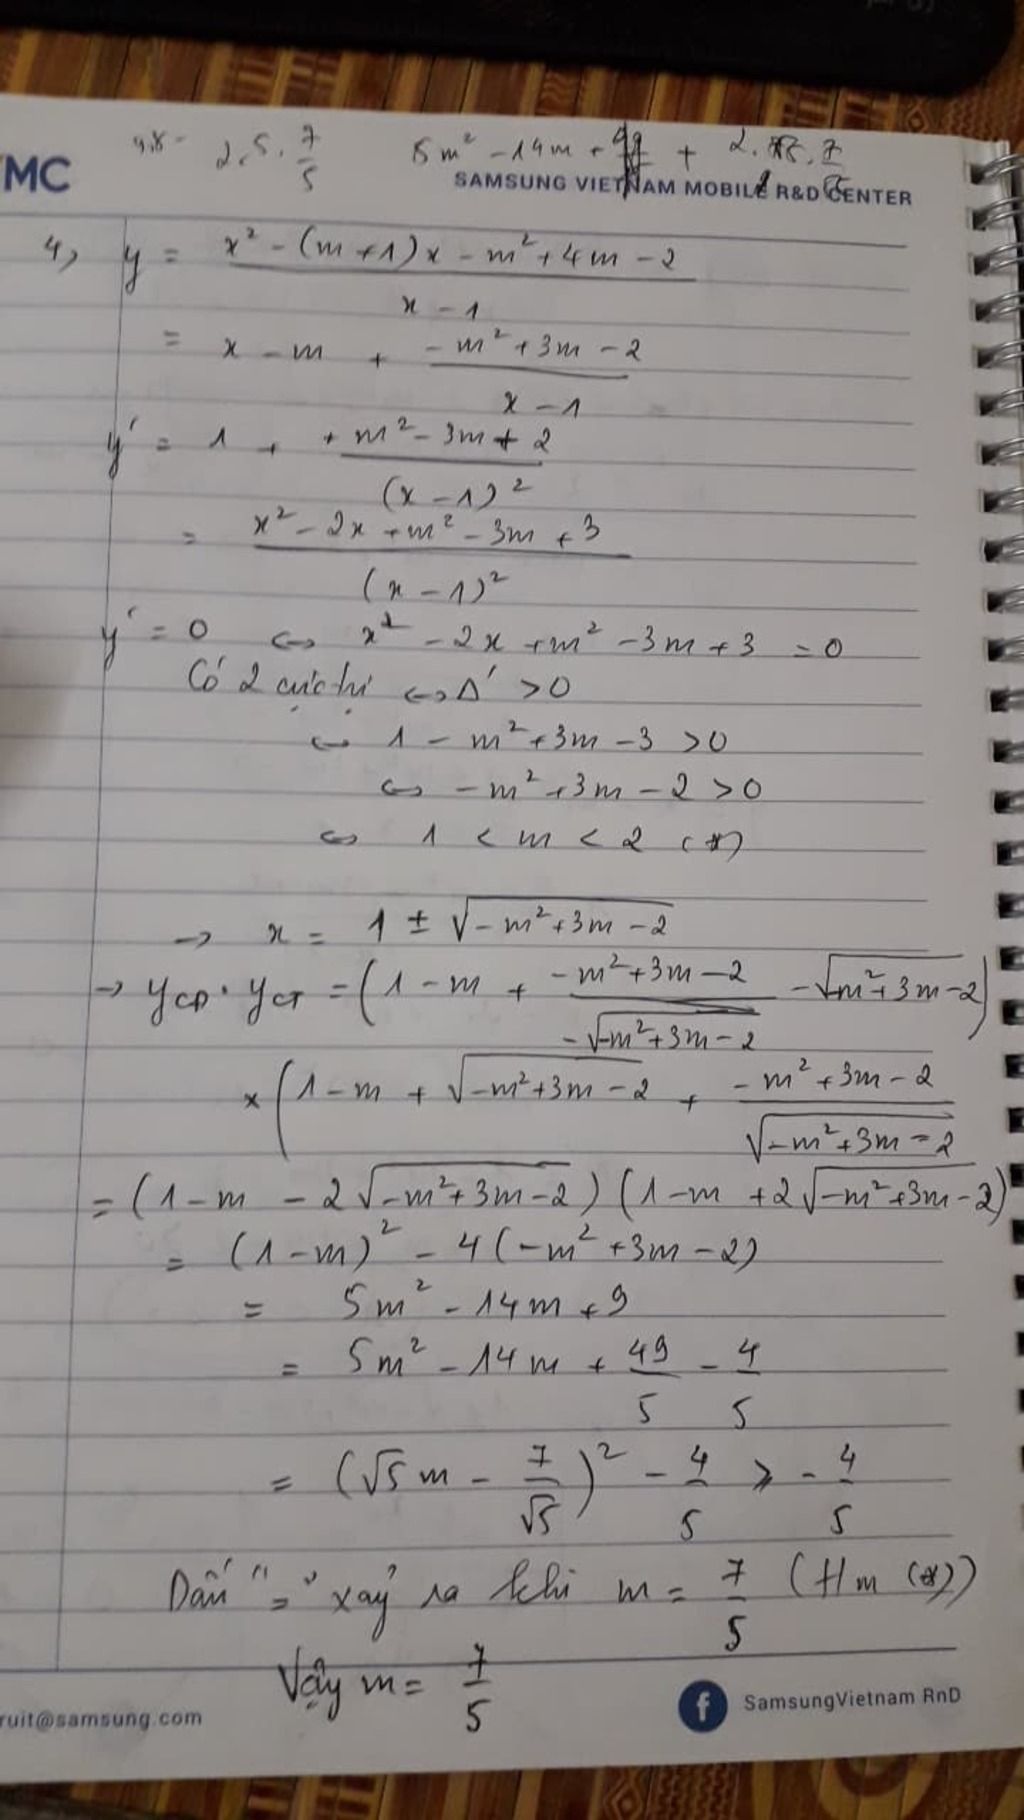 2.5.7/5 5m² - 14m +
MC
SAMSUNG VIETNAM MOBILE R&D CENTER
4, y = (x² - (m+1)x - m² + 4m - 2)/(x - 1)
= x - m + (-m² + 3m - 2)/(x - 1)
y' = 1 + (+m² - 3m + 2)/(x - 1)²
= (x² - 2x + m² - 3m + 3)/(x - 1)²
y' = 0 ⇔ x² - 2x + m² - 3m + 3 = 0
Có 2 cực trị ⇔ Δ' > 0
⇔ 1 - m² + 3m - 3 > 0
⇔ -m² + 3m - 2 > 0
⇔ 1 < m < 2 (*)
→ x = 1 ± √(-m² + 3m - 2)
→ yCĐ . yCT = (1 - m + (-m² + 3m - 2)/(-√(-m² + 3m - 2)) - √(-m² + 3m - 2))
× (1 - m + √(-m² + 3m - 2) + (-m² + 3m - 2)/√(-m² + 3m - 2)
= (1 - m - 2√(-m² + 3m - 2)) (1 - m + 2√(-m² + 3m - 2))
= (1 - m)² - 4(-m² + 3m - 2)
= 5m² - 14m + 9
= 5m² - 14m + 49/5 - 4/5
= (√5m - 7/√5)² - 4/5 ≥ -4/5
Dấu "=" xảy ra khi m = 7/5 (tm (*))
Vậy m = 7/5
ruit@samsung.com
f SamsungVietnam RnD